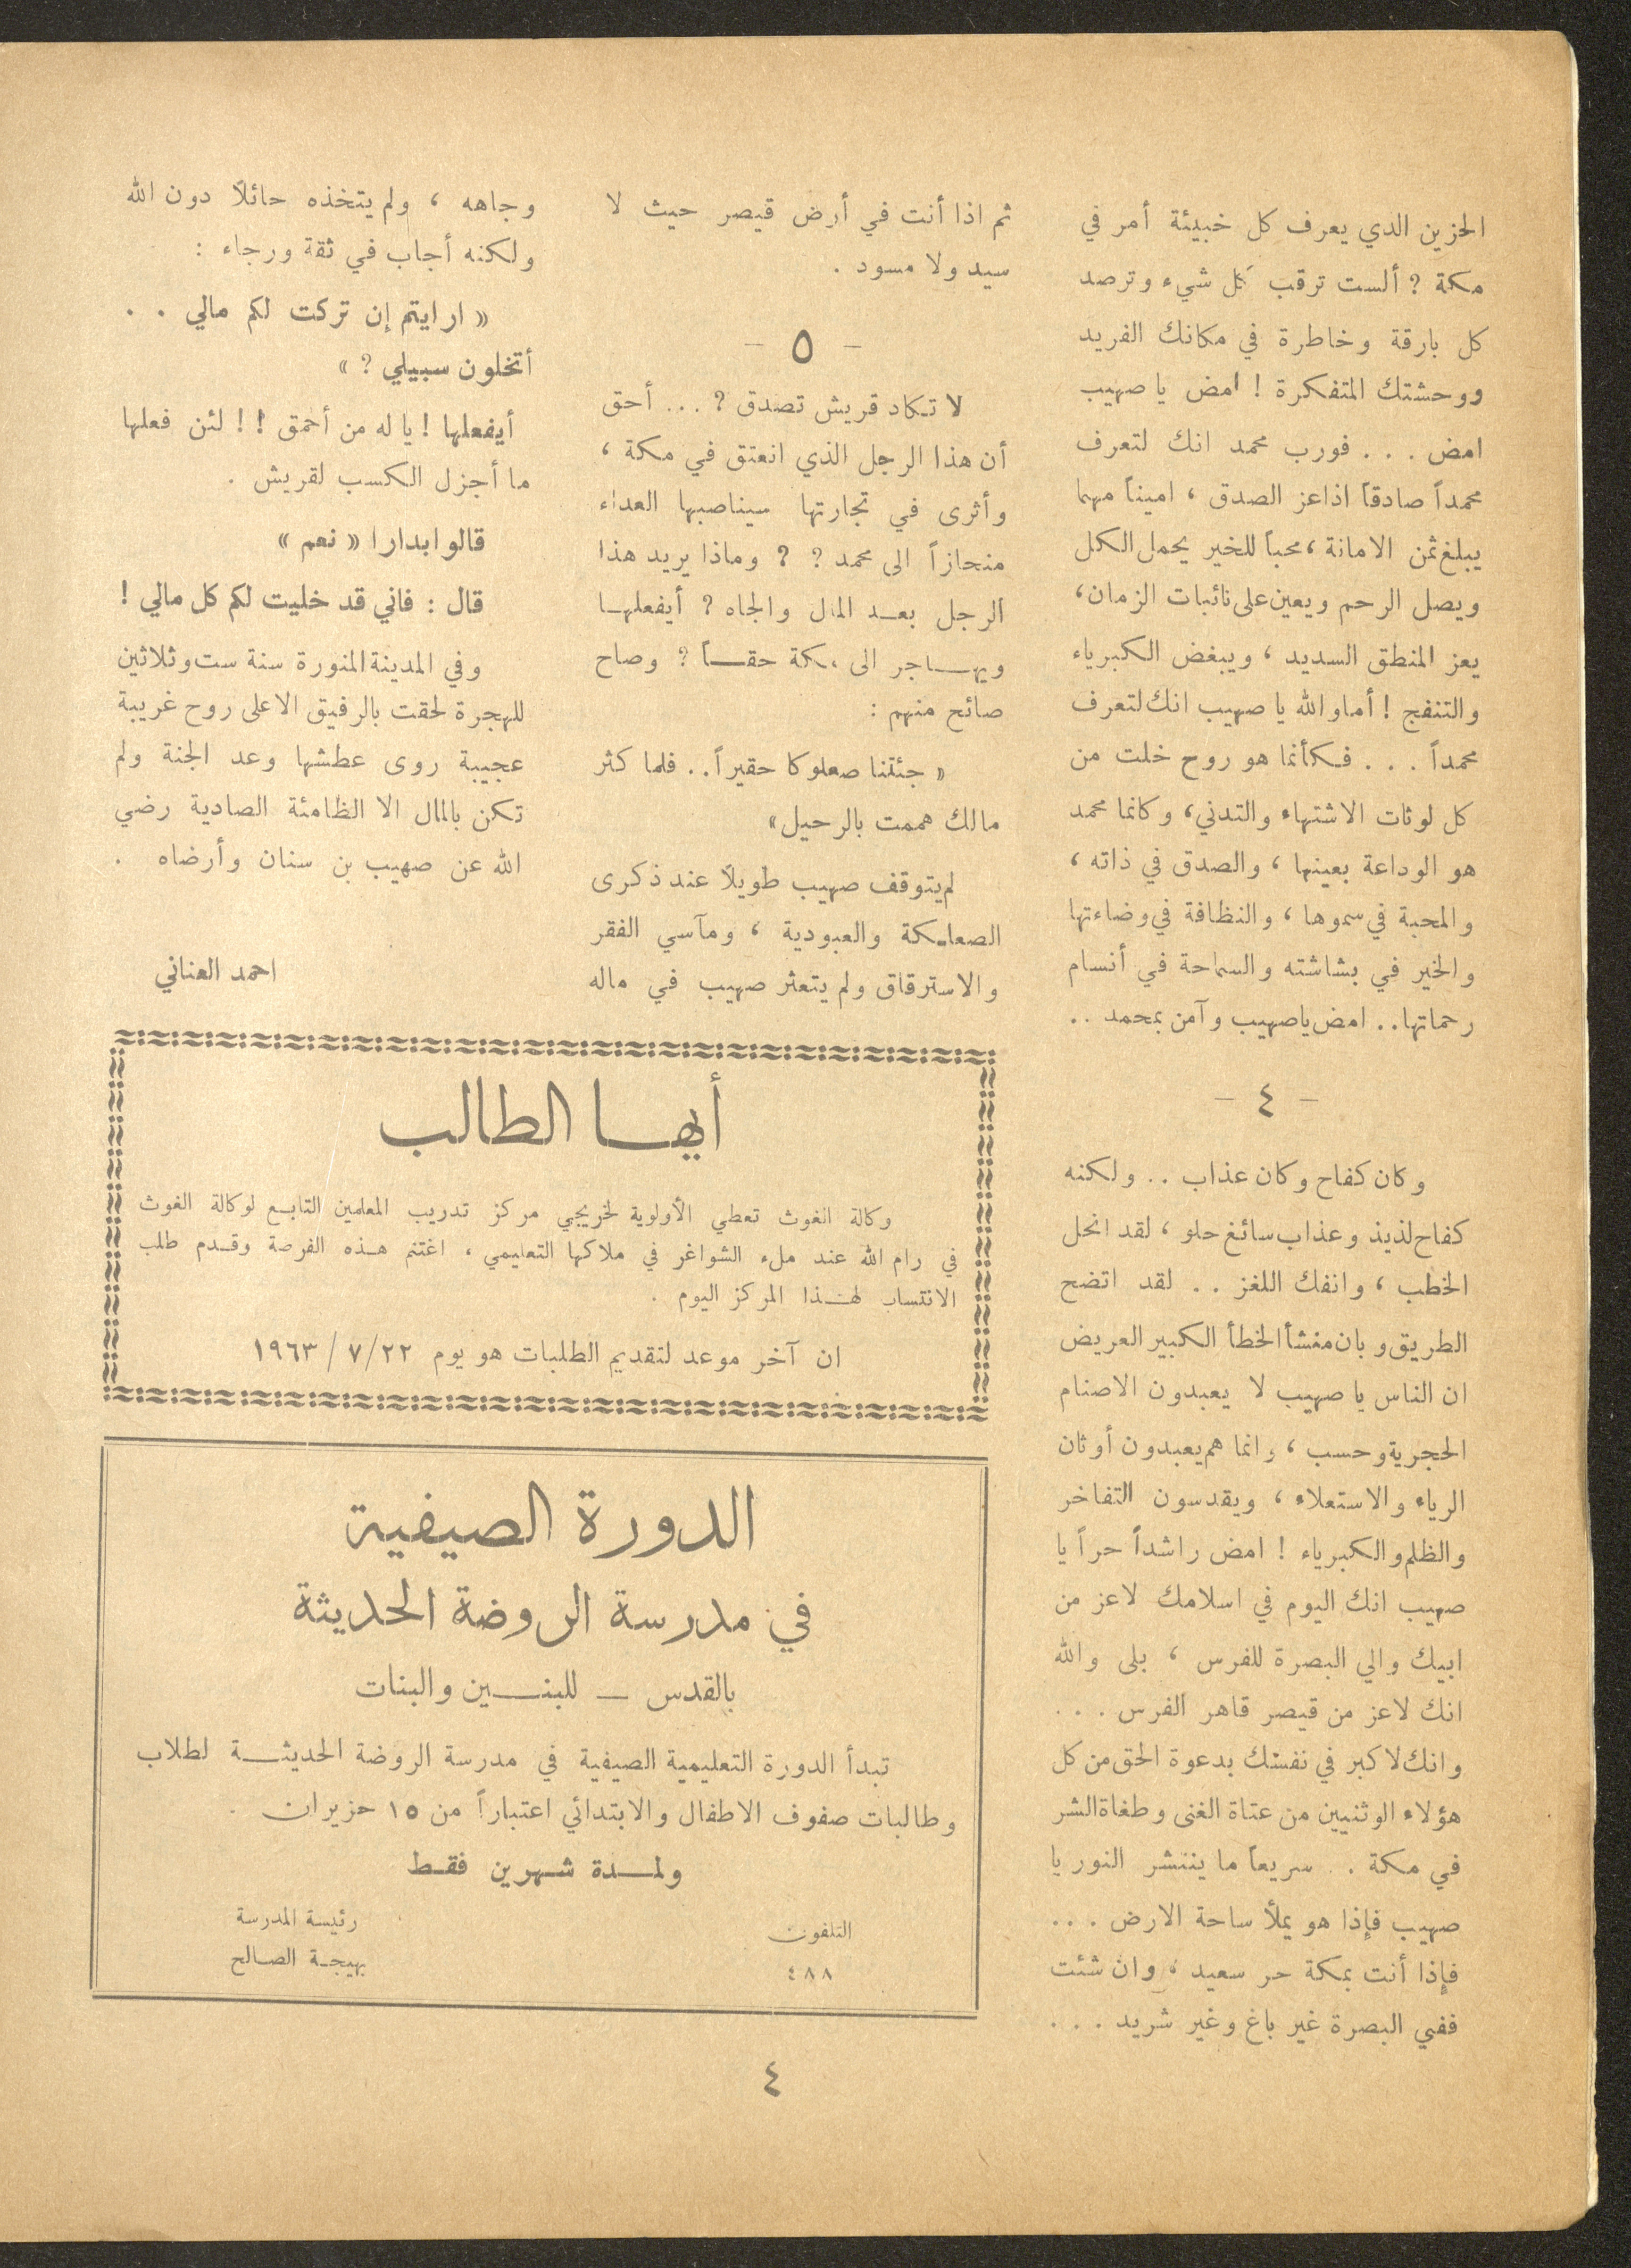 الحزين الذي يعرف كل خبيئة أمر في
مكة ? ألست ترقب كل شيء وترصد
كل بارقة وخاطرة في مكانك الفريد
ووحشتك المتفكرة ! امض يا صهيب
امض . . . فورب محمد انك لتعرف
محمداً صادقاً اذاعز الصدق ، اميناً مهما
يبلغ ثمن الامانة ، محباً للخير يحمل الكل
ويصل الرحم ويعين على نائبات الزمان ،
يعز المنطق السديد ، ويبغض الكبرياء
والتنفج ! أما والله يا صهيب انك لتعرف
محمداً . . . فكأنما هو روح خلت من
كل لوثات الاشتهاء والتدني ، وكانما محمد
هو الوداعة بعينها ، والصدق في ذاته ،
والمحبة في سموها ، والنظافة في وضاءتها
والخير في بشاشته والسماحة في أنسام
رحماتها .. امض ياصهيب وآمن بمحمد ..
– ٤ –
وكان كفاح وكان عذاب .. ولكنه
كفاح لذيذ وعذاب سائغ حلو ، لقد انحل
الخطب ، وانفك اللغز .. لقد اتضح
الطريق وبان منشأ الخطأ الكبير العريض
ان الناس يا صهيب لا يعبدون الاصنام
الحجرية وحسب ، وانما هم يعبدون أوثان
الرياء والاستعلاء ، ويقدسون التفاخر
والظلم والكبرياء ! امض راشداً حراً يا
صهيب انك اليوم في اسلامك لاعز من
ابيك والي البصرة للفرس ، بلى والله
انك لاعز من قيصر قاهر الفرس . . .
وانك لاكبر في نفسك بدعوة الحق من كل
هؤلاء الوثنيين من عتاة الغنى وطغاة الشر
في مكة .. سريعاً ما ينتشر النور يا
صهيب فإذا هو يملأ ساحة الارض . . .
فإذا أنت بمكة حر سعيد ، وان شئت
ففي البصرة غير باغ وغير شريد . . .
ثم اذا أنت في أرض قيصر حيث لا
سيد ولا مسود .
– ٥ –
لا تكاد قريش تصدق ? ... أحق
أن هذا الرجل الذي انعتق في مكة ،
وأثرى في تجارتها سيناصبها العداء
منحازاً الى محمد ? ? وماذا يريد هذا
الرجل بعد المال والجاه ? أيفعلها
ويهاجر الى مكة حقاً ? وصاح
صائح منهم :
« جئتنا صعلوكا حقيراً .. فلما كثر
مالك هممت بالرحيل »
لم يتوقف صهيب طويلاً عند ذكرى
الصعلكة والعبودية ، ومآسي الفقر
والاسترقاق ولم يتعثر صهيب في ماله
وجاهه ، ولم يتخذه حائلاً دون الله
ولكنه أجاب في ثقة ورجاء :
« ارايتم إن تركت لكم مالي . .
أتخلون سبيلي ? »
أيفعلها ! يا له من أحمق ! ! لئن فعلها
ما أجزل الكسب لقريش .
قالوا بدارا « نعم »
قال : فاني قد خليت لكم كل مالي !
وفي المدينة المنورة سنة ست وثلاثين
للهجرة لحقت بالرفيق الاعلى روح غريبة
عجيبة روى عطشها وعد الجنة ولم
تكن بالمال الا الظامئة الصادية رضي
الله عن صهيب بن سنان وأرضاه .
احمد العناني
أيها الطالب
وكالة الغوث تعطي الأولوية لخريجي مركز تدريب المعلمين التابع لوكالة الغوث
في رام الله عند ملء الشواغر في ملاكها التعليمي ، اغتنم هذه الفرصة وقدم طلب
الانتساب لهذا المركز اليوم .
ان آخر موعد لتقديم الطلبات هو يوم ٢٢/ ٧ / ١٩٦٣
الدورة الصيفية
في مدرسة الروضة الحديثة
بالقدس – للبنين والبنات
تبدأ الدورة التعليمية الصيفية في مدرسة الروضة الحديثة لطلاب
وطالبات صفوف الاطفال والابتدائي اعتباراً من ١٥ حزيران .
ولمدة شهرين فقط
التلفون
٤٨٨
رئيسة المدرسة
بهيجة الصالح
٤